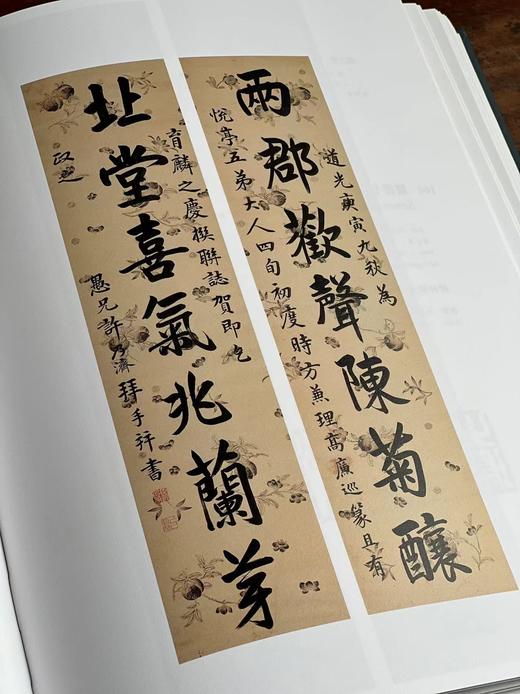 道光庚寅九秋為
兩郡歡聲陳菊釀
悅亭五弟大人四旬初度時方兼理高廉巡篆且有
育麟之慶撰聯誌賀即乞
北堂喜氣兆蘭芽
政之 愚兄許乃濟拜手并書